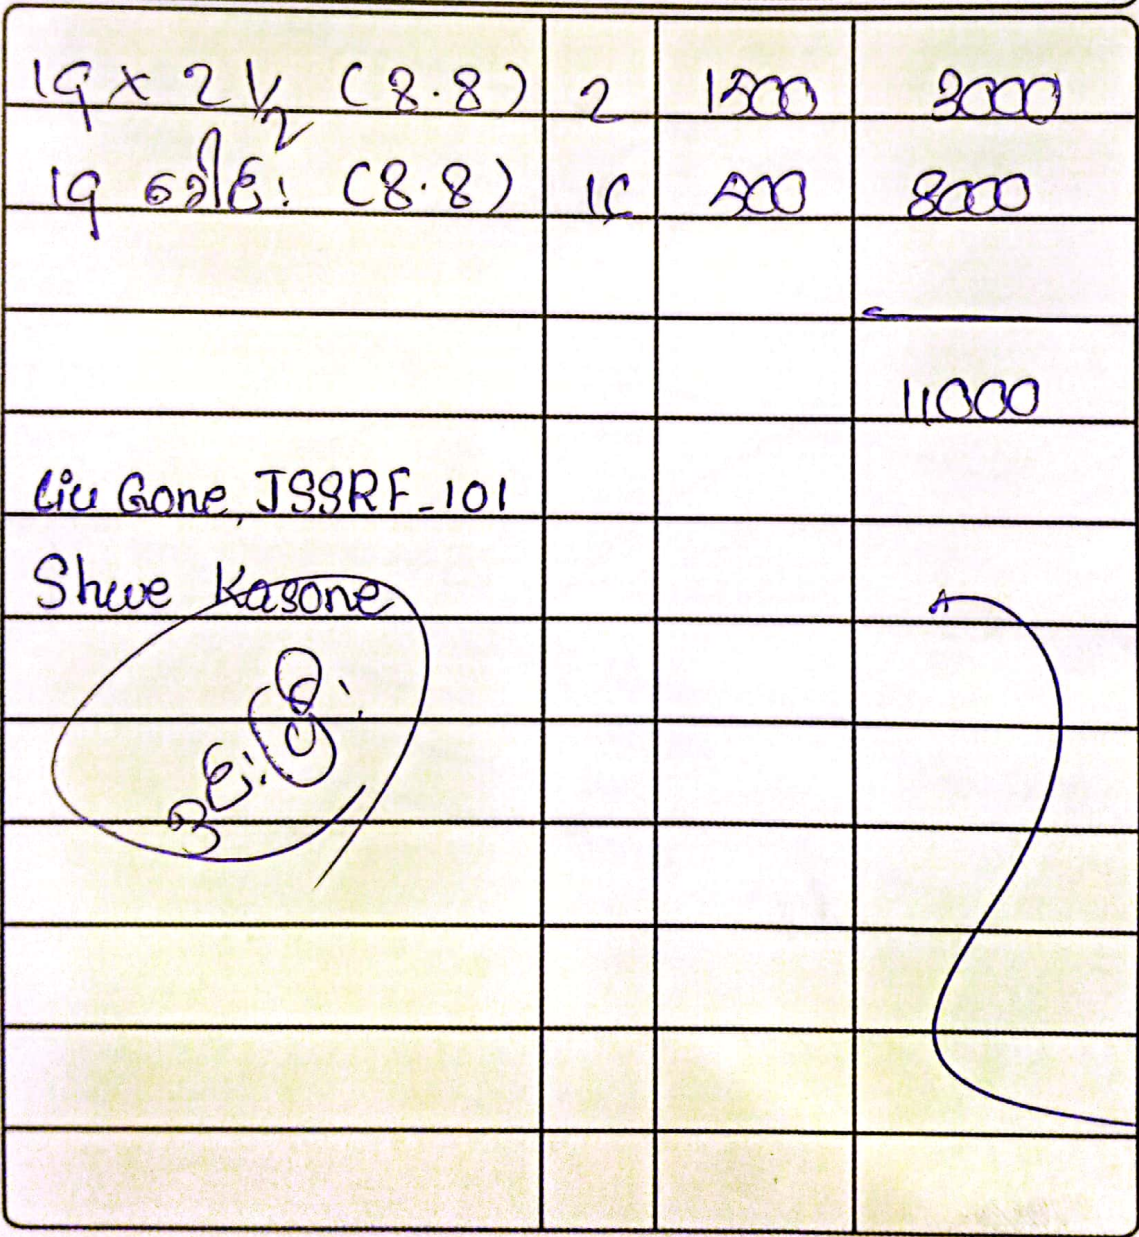 19 x 2 1/2 (8.8) 2 1500 3000
19 ခေါင်း (8.8) 16 500 8000
11000
Liu Gone, JSSRF-101
Shwe Kasone